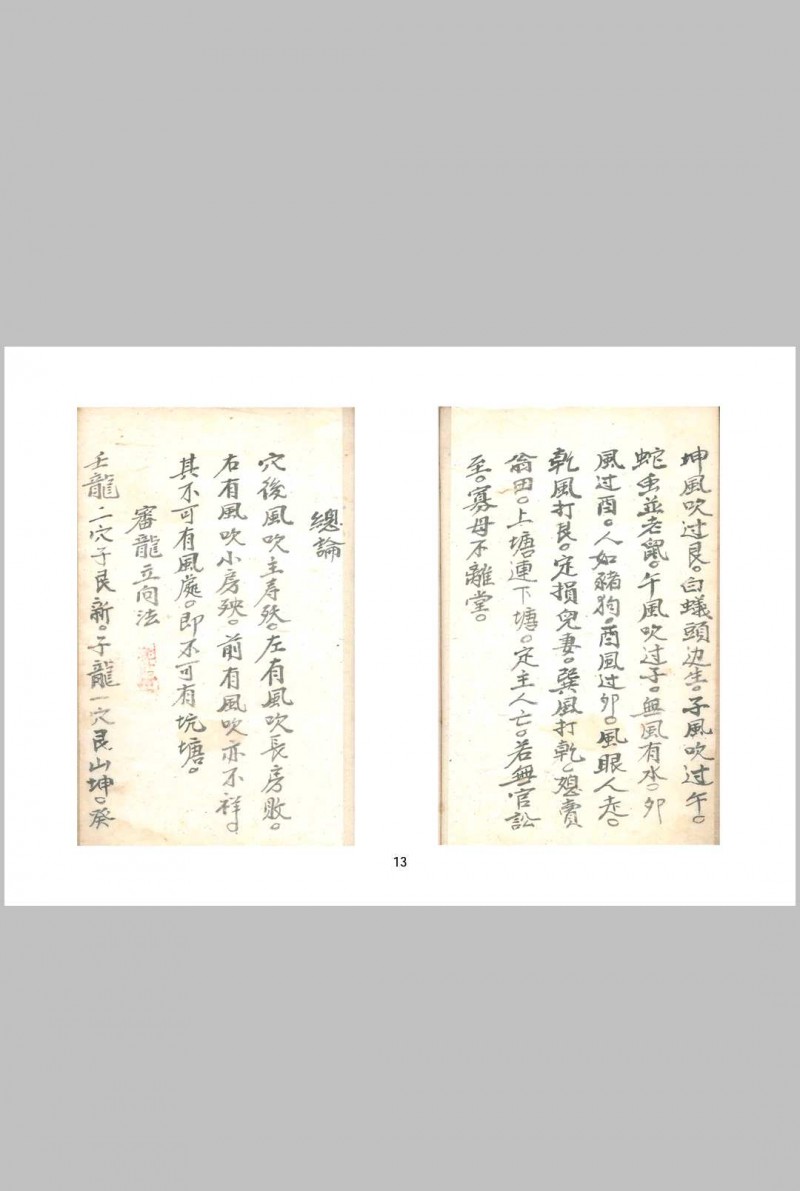 坤風吹过艮。白蟻頭边生。子風吹过午。
蛇虫並老鼠。午風吹过子。無風有水。夘
風过酉。人如豬狗。酉風过夘。風眼人走。
乾風打艮。定損兒妻。巽風打乾。賣
翁田。上塘連下塘。定主人亡。若無官訟
至。寡母不離堂。
總論
穴後風吹主寿。左有風吹長房敗。
右有風吹小房殃。前有風吹亦不祥。
其不可有風處。即不可有坑塘。
審龍立向法
壬龍二穴子艮新。子龍一穴艮山坤。癸
13